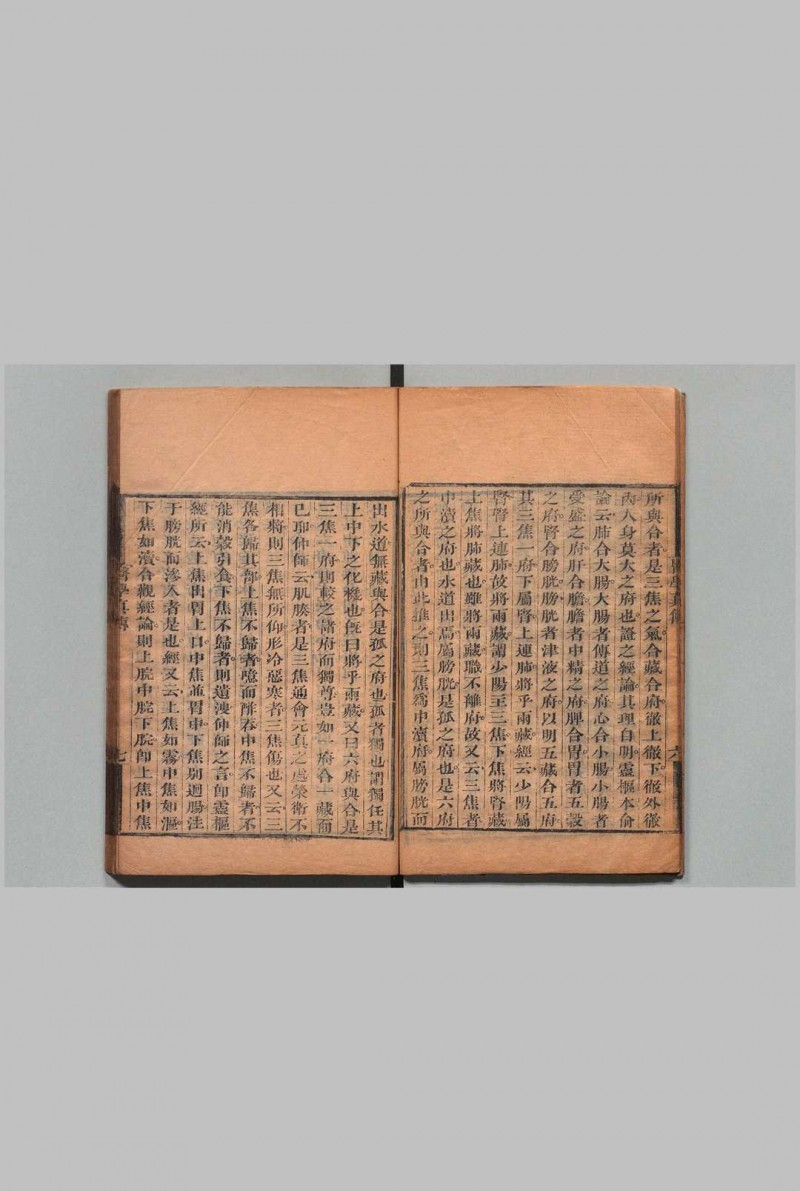 所與合者是三焦之氣合藏合府徹上徹下徹外徹
內人身莫大之府也證之經論其理自明靈樞本俞
論云肺合大腸大腸者傳道之府心合小腸小腸者
受盛之府肝合膽膽者中精之府脾合胃胃者五穀
之府腎合膀胱膀胱者津液之府以明五藏合五府
其三焦一府下屬腎上連肺將乎兩藏經云少陽屬
腎腎上連肺故將兩藏謂少陽主三焦下焦將腎藏
上焦將肺藏也雖將兩藏職不離府故又云三焦者
中瀆之府也水道出焉屬膀胱是孤之府也是六府
之所與合者由此推之則三焦爲中瀆府屬膀胱而
六
出水道無藏與合是孤之府也孤者獨也謂獨任其
上中下之化機也旣曰將乎兩藏又曰六府與合是
三焦一府則較之諸府而獨尊豈如一府合一藏而
已耶仲師云肌腠者是三焦通會元真之處榮衛不
相將則三焦無所仰形冷惡寒者三焦傷也又云三
焦各歸其部上焦不歸者噫而酢吞中焦不歸者不
能消穀引食下焦不歸者則遺溲仲師之言卽靈樞
經所云上焦出胃上口中焦並胃中下焦別迴腸注
于膀胱而滲入者是也經又云上焦如霧中焦如漚
下焦如瀆合觀經論則上脘中脘下脘卽上焦中焦
醫學真傳
七